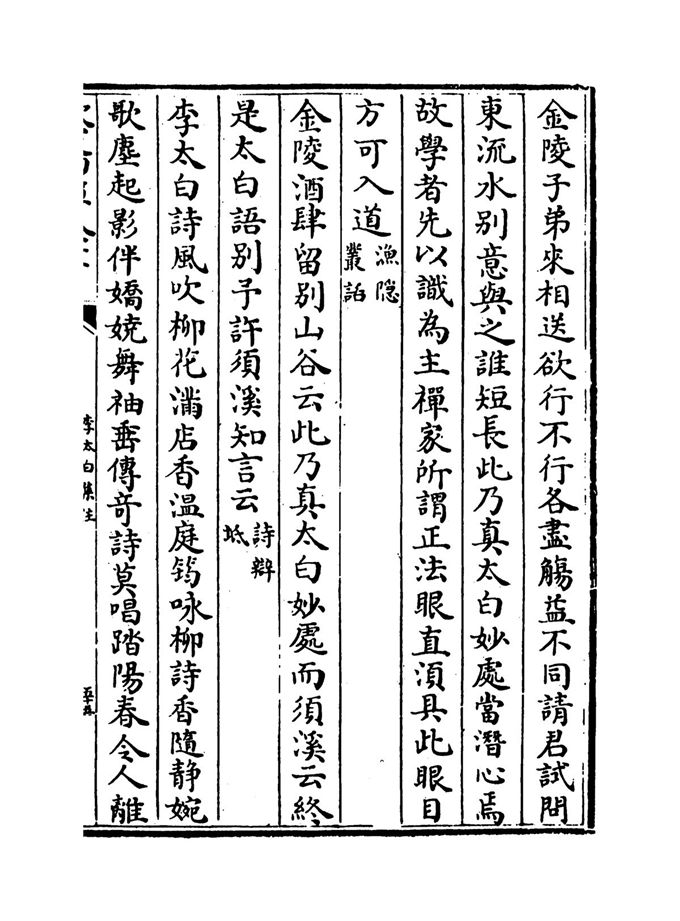 金陵子弟來相送欲行不行各盡觴益不同請君試問
東流水别意與之誰短長此乃真太白妙處當潛心焉
故學者先以識為主禪家所謂正法眼直須具此眼目
方可入道漁隠叢話
金陵酒肆留别山谷云此乃真太白妙處而須溪云終
是太白語别予許須溪知言云詩辯坻
李太白詩風吹柳花滿店香温庭筠咏柳詩香隨静婉
歌塵起影伴嬌嬈舞袖垂傳竒詩莫唱踏陽春令人離
李太白集注